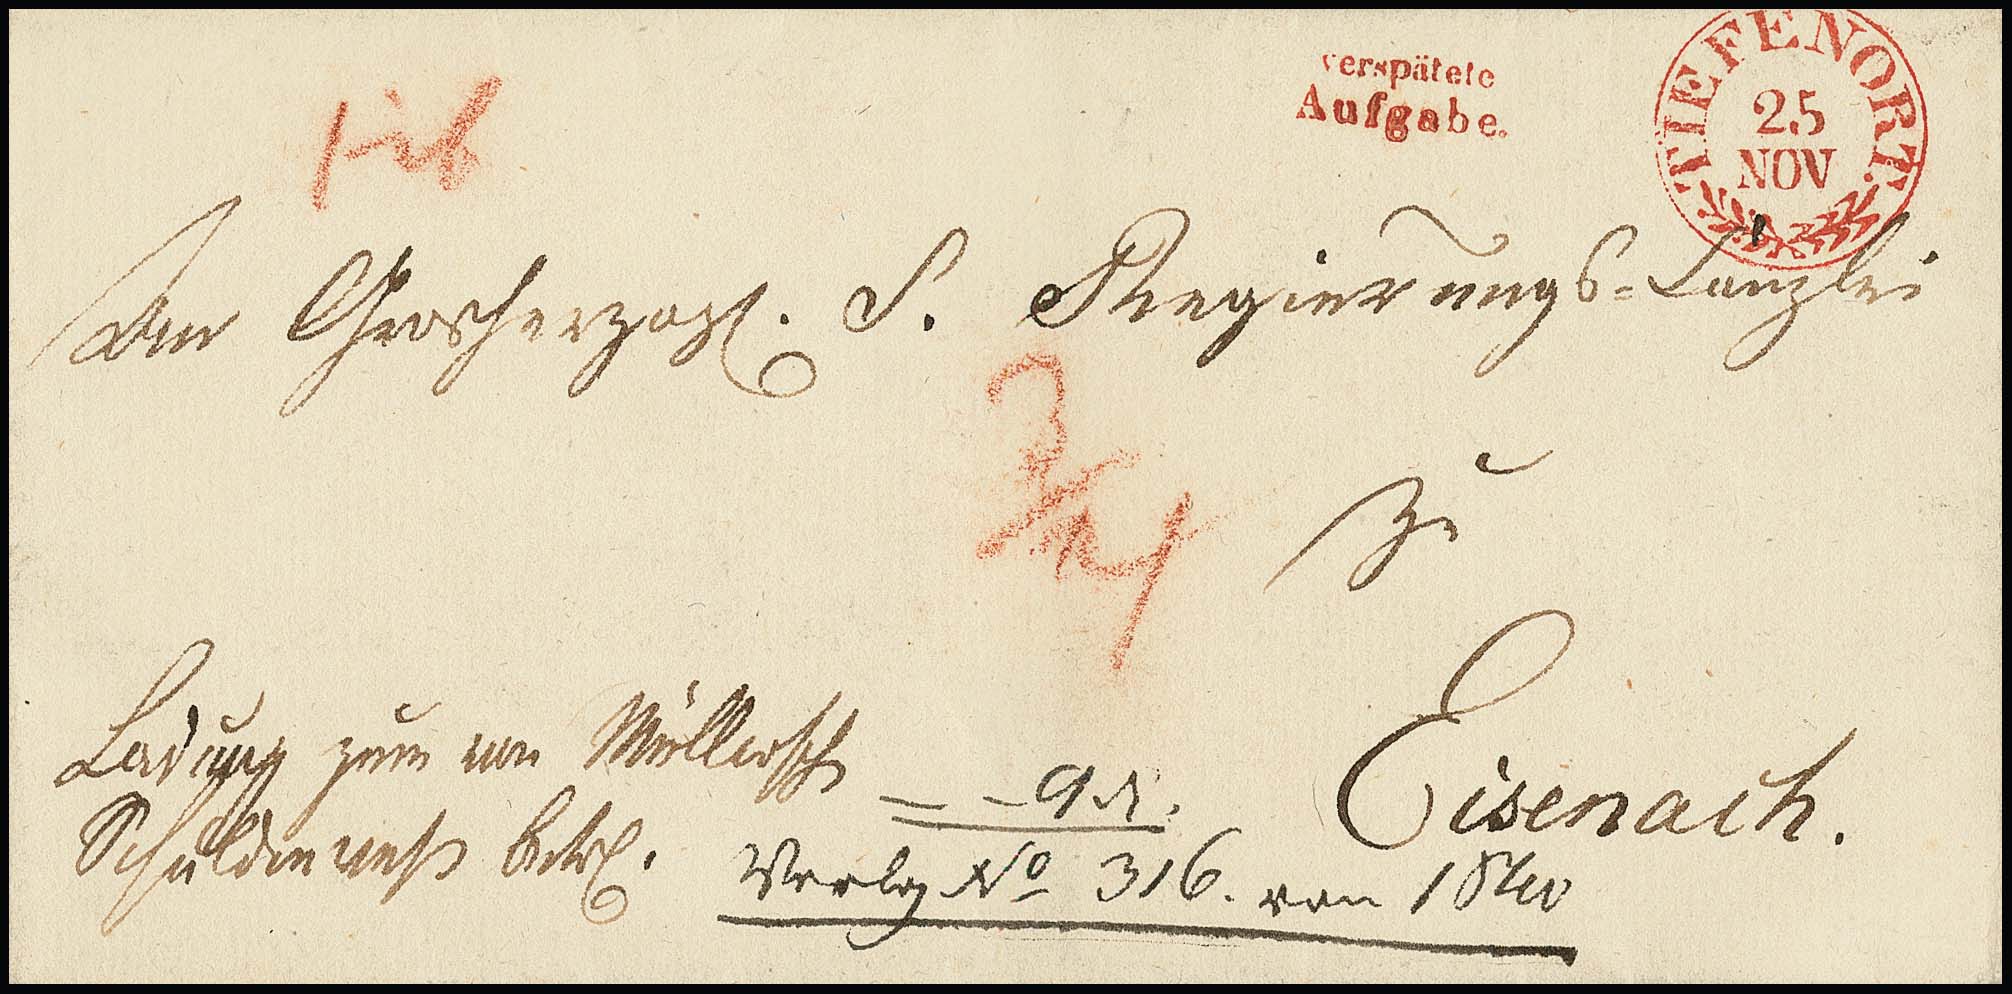 verspätete
Aufgabe.
TIEFENORT.
25
NOV
An Grosherzogl. S. Regierungs=Canzlei
zu
Eisenach.
Ladung zum von Müllersch
Schuldenwesen betr.
No 316. von 1840